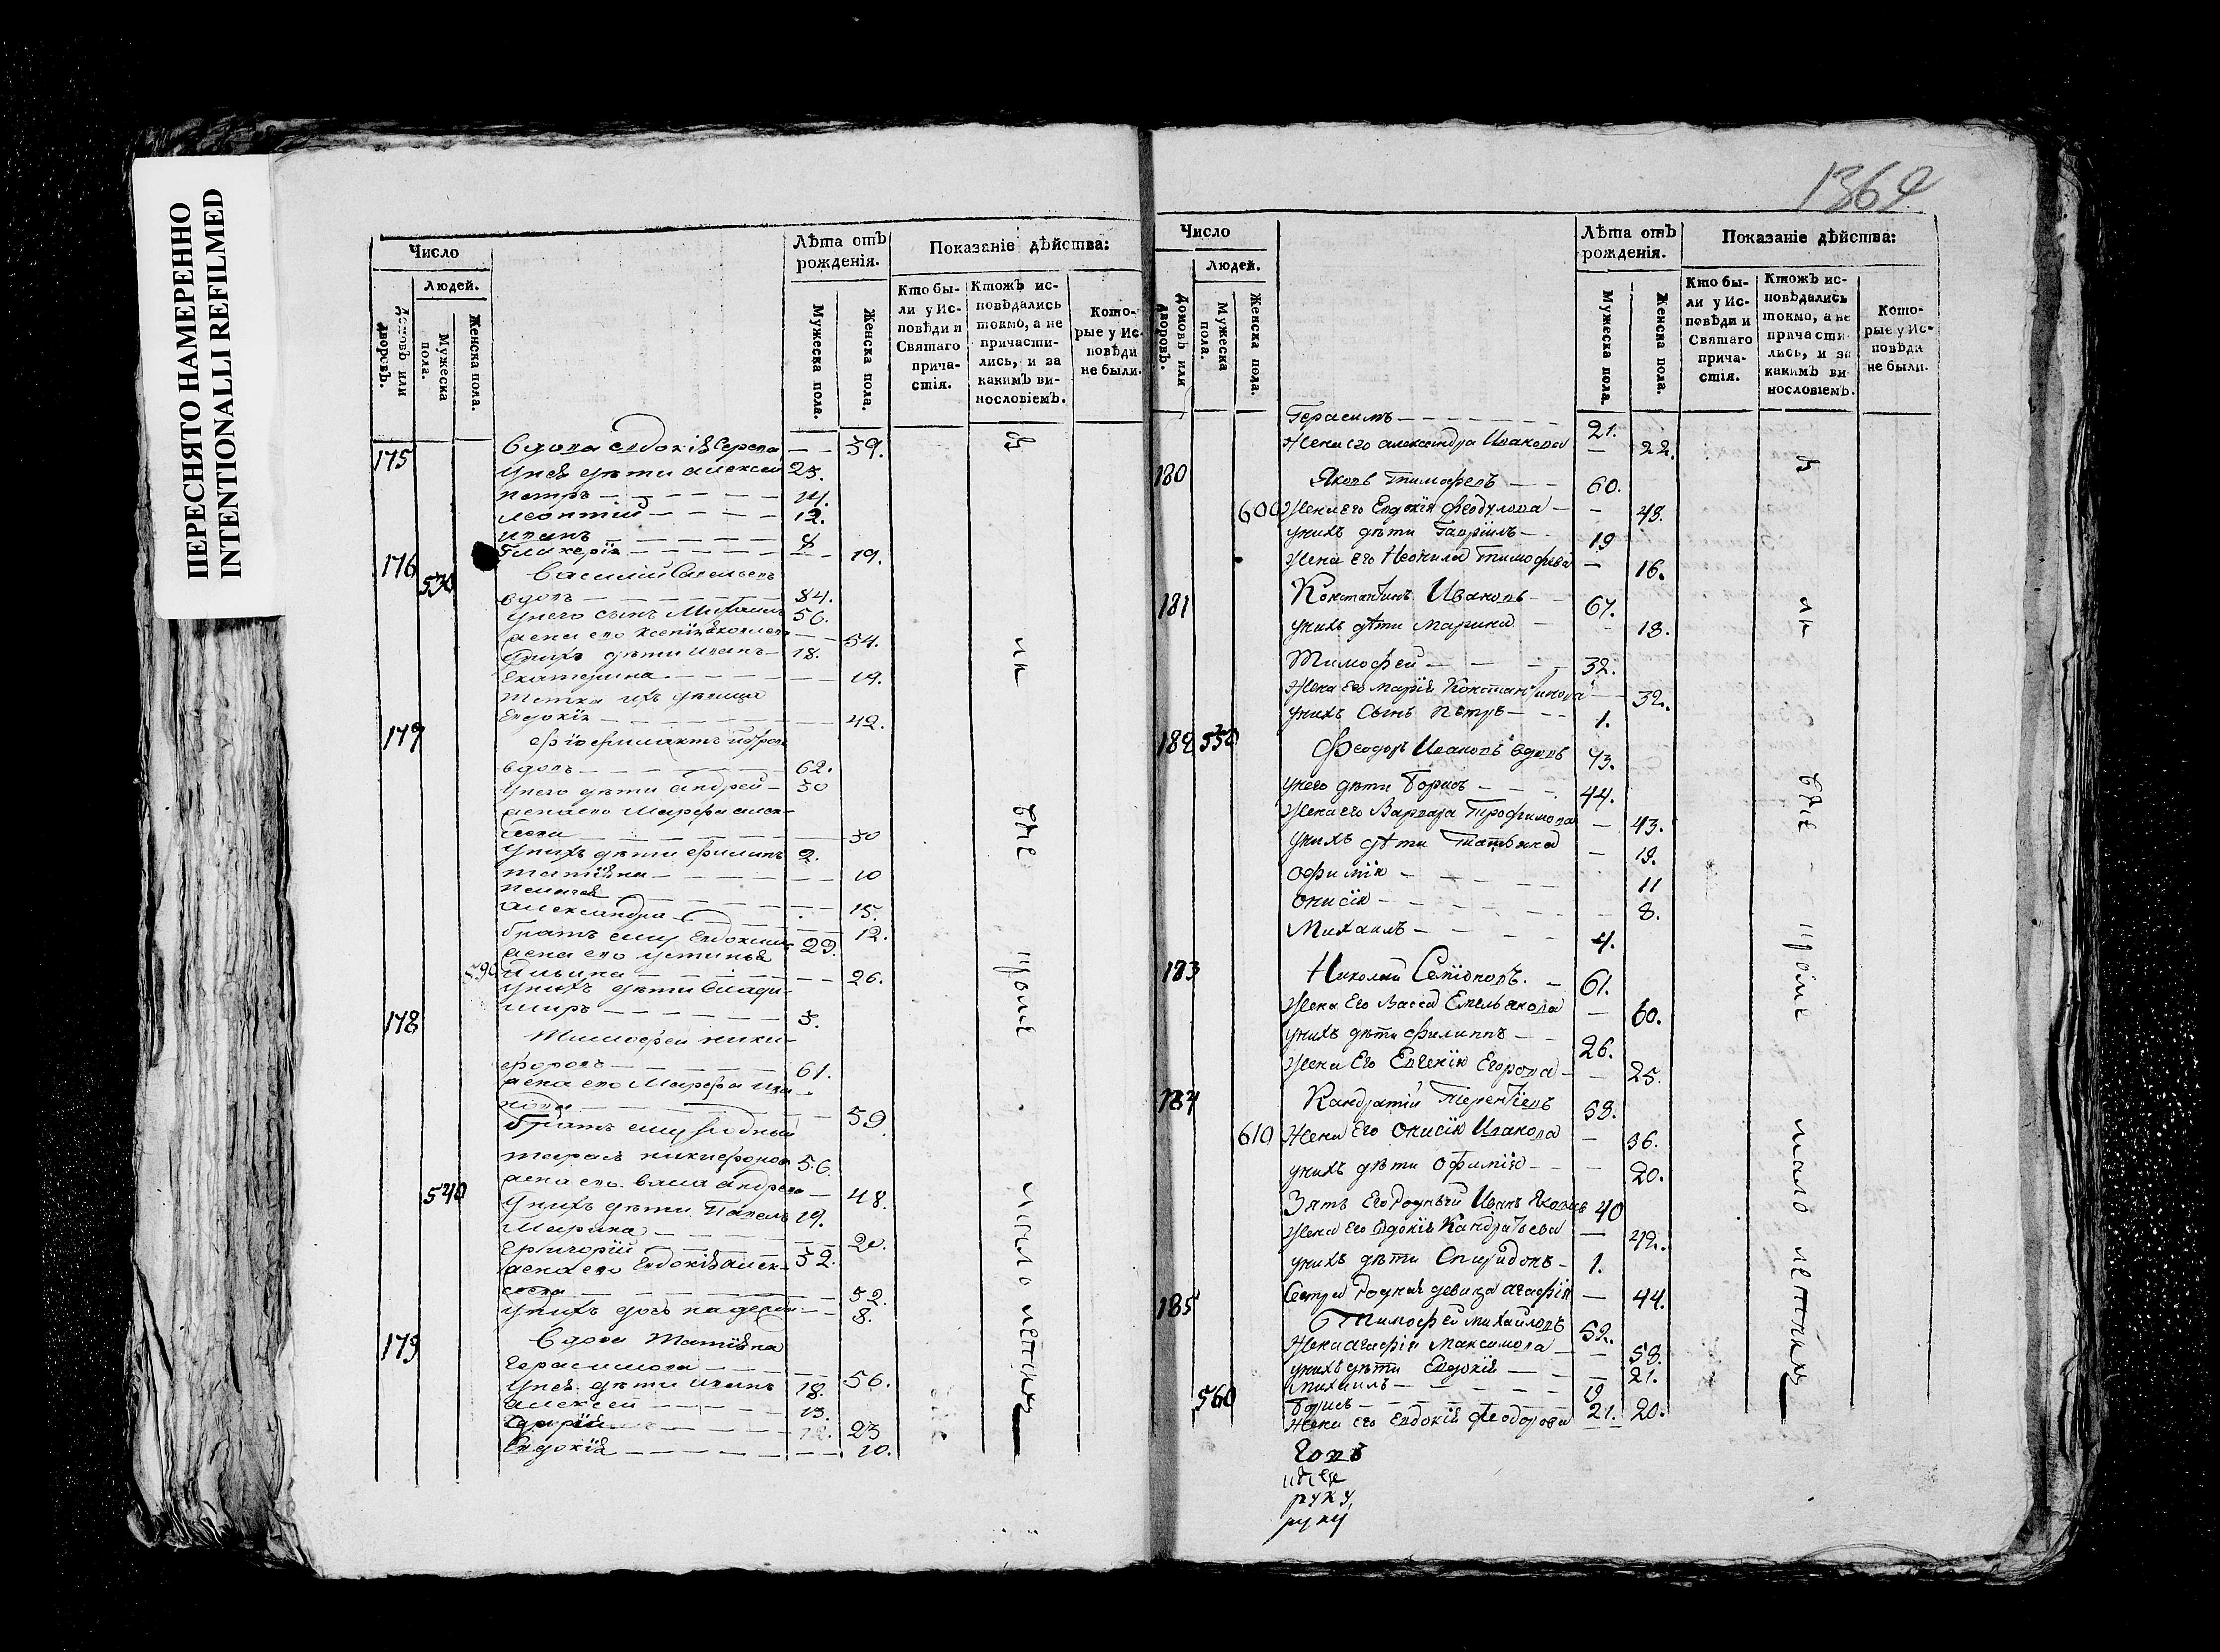 ПЕРЕСНЯТО НАМЕРЕННО
INTENTIONALLI REFILMED
1364
Число
Людей.
Домовъ или дворовъ.
Мужеска пола.
Женска пола.
Лѣта отъ рожденія.
Мужеска пола.
Женска пола.
Показаніе дѣйства:
Кто были у Исповѣди и Святаго причастія.
Ктожъ исповѣдались токмо, а не причастились, и за какимъ винословіемъ.
Которые у Исповѣди не были.
175 вдова евдокія — — 39.
унея дѣти алексей 23.
петръ — — — 14.
леонтий — — — 12.
иванъ — — — 8
Гликерія — — — 19.
176 530 Василий Савельевъ
вдовъ — — — 84.
унего сынъ Михаилъ 56.
жена его ксенія — — 54.
унихъ дѣти иванъ — 18.
екатерина — — — 14.
тетка ихъ девица
Евдокія — — — 42.
177 Фіофилактъ петровъ
вдовъ — — — 62.
унего дѣти андрей — 30
жена его Марфа алек-
сеева — — — 30
унихъ дѣти филипъ 2.
татіяна — — — 10
пелагея
александра — — 15.
братъ ему Евдокимъ 29. 12.
жена его устинья
590 ильина — — — 26.
унихъ дѣти влади-
миръ — — — 3.
178 Тимофей ники-
форовъ — — — 61.
жена его Марфа ива-
нова — — — 59.
братъ ему родный
тарасъ никифоровъ 56.
540 жена его андреева — 48.
унихъ дѣти Павелъ 19.
Марина — — — 20.
григорій — — — 32.
жена его Евдокія алек-
сеева — — — 32.
унихъ дочь надежда — 8.
179 вдова Татіяна
герасимова — — — 56.
унея дѣти иванъ 18.
алексей — — — 13.
23
Евдокія — — — 10.
въ
ны
бѣ
кромѣ
мало лѣтнихъ
Число
Людей.
Домовъ или дворовъ.
Мужеска пола.
Женска пола.
Лѣта отъ рожденія.
Мужеска пола.
Женска пола.
Показаніе дѣйства:
Кто были у Исповѣди и Святаго причастія.
Ктожъ исповѣдались токмо, а не причастились, и за какимъ винословіемъ.
Которые у Исповѣди не были.
Герасимъ — — — 21.
Жена его александра Иванова — 22.
180 Яковъ тимофевъ — — 60.
600 Жена его Евдокія феодулова — — 48.
унихъ дѣти Гавріилъ — 19
Жена Его Неонила тимофева — 16.
181 Константинъ Ивановъ — 67.
унихъ дѣти марина — 18.
Тимофей — — — 32.
Жена Его марія Константинова — 32.
унихъ Сынъ петръ — — 1.
182 550 Феодоръ Ивановъ вдовъ 73.
унего дѣти Борисъ — — 44.
Жена его Варвара Трофимова — 43.
унихъ дѣти Татьяна — 19.
офимія — — — 11
онисія — — — 8.
Михаилъ — — — 4.
183 Николай Семіоновъ. — 61.
Жена Его Васса Емельянова — 60.
унихъ дѣти филиппъ — 26.
Жена Его Евгенія Егорова — 25.
184 Кандратій Терентіевъ 58.
610 Жена Его онисія Иванова — 56.
унихъ дѣти офимія — — 20.
Зять Его родный Иванъ Яковлевъ 40
Жена Его Евдокія Кандратьева — 42.
унихъ дѣти Спиридонъ — 1.
Сестра родная девица агафія — 44.
185 Тимофей михайловъ 59.
Жена агафія Максимова — 58.
унихъ дѣти Евдокія — — 21.
Михаилъ — — — 19
560 Борисъ — — — 21.
Жена его Евдокія феодорова 20.
въ
ны
бѣ
кромѣ
мало лѣтнихъ
руку
руку